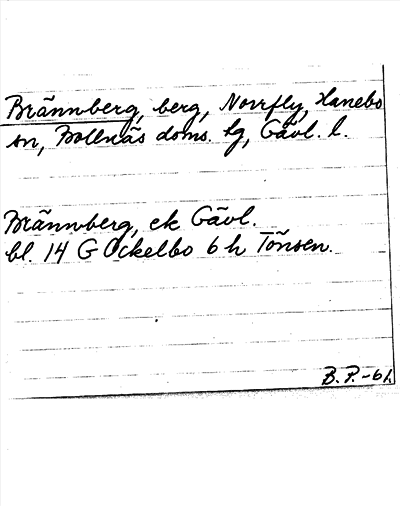 Brännberg, berg, Norrfly, Hanebo
sn, Bollnäs doms. lg, Gävl. l.
Brännberg, ek Gävl.
bl. 14 G Ockelbo 6 h Tönsen.
B. P. -61.